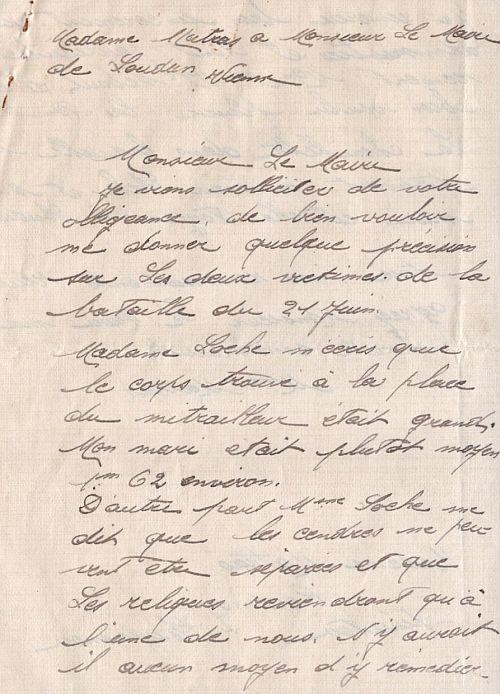 Madame Matras a Monsieur Le Maire
de Loudun Vienne
Monsieur Le Maire
je viens solliciter de votre
obligeance, de bien vouloir
me donner quelque précision
sur Les deux victimes de la
bataille du 21 Juin.
Madame Loche m'écris que
le corps trouvé à la place
du mitrailleur était grand.
Mon mari etait plutôt moyen
1m 62 environ.
D'autre part Mme Loche me
dit que les cendres ne peu-
vent etre séparées et que
Les reliques reviendront qu'à
l'une de nous. N'y aurait
il aucun moyen d'y remédier.